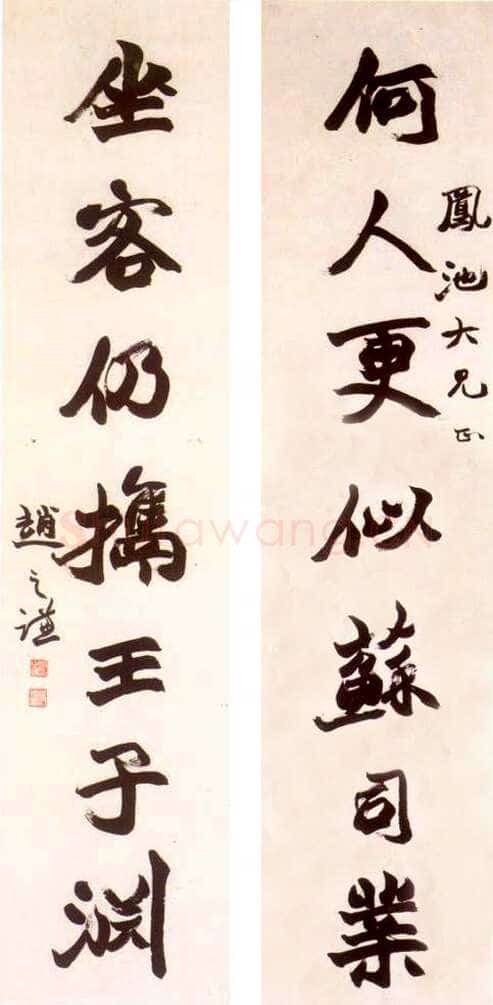 鳳池大兄正
何人更似蘇司業
坐客仍攜王子淵
趙之謙